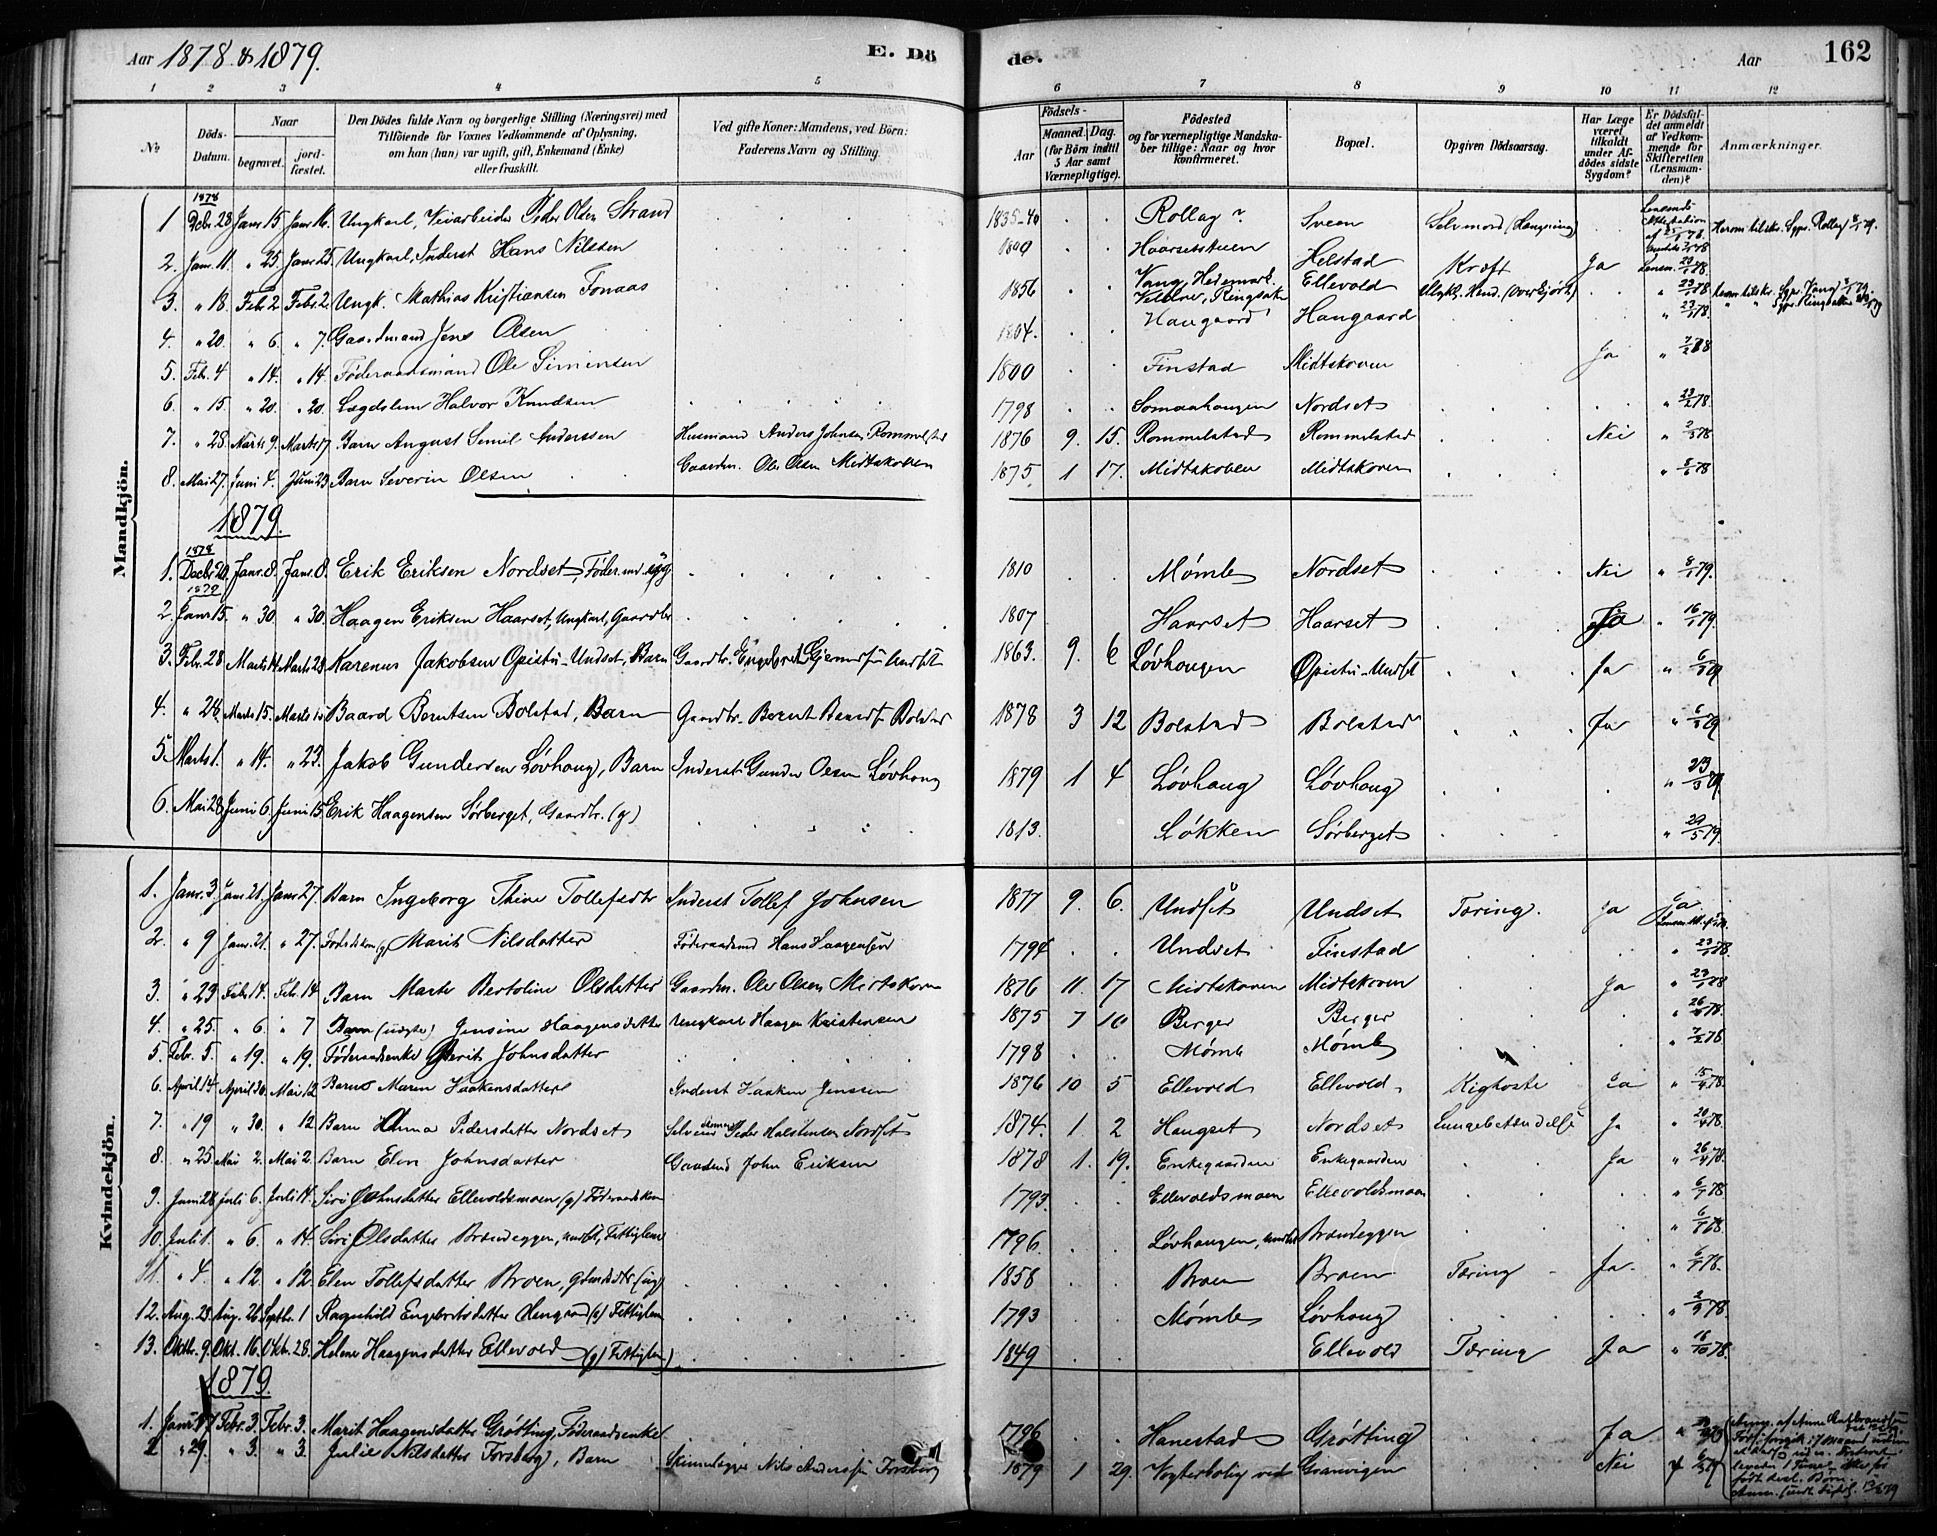 Aar 1878 & 1879. E. Dö
de. Aar 162
1 2 3 4 5 6 7 8 9 10 11 12
No Döds-Datum. Naar begravet. jord-fæstet. Den Dödes fulde Navn og borgerlige Stilling (Næringsvei) med Tilföiende for Voxnes Vedkommende af Oplysning, om han (hun) var ugift, gift, Enkemand (Enke) eller fraskilt. Ved gifte Koner: Mandens, ved Börn: Faderens Navn og Stilling. Födsels- Aar Maaned. Dag. (for Börn indtil 5 Aar samt Værnepligtige). Födested og for værnepligtige Mandskaber tillige: Naar og hvor konfirmeret. Bopæl. Opgiven Dödsaarsag. Har Læge været tilkaldt under Afdödes sidste Sygdom? Er Dödsfaldet anmeldt af Vedkommende for Skifteretten (Lensmanden)? Anmærkninger.
Mandkjön.
1878
1 Decbr. 28 Janr. 15 Janr. 16. Ungkarl, Veiarbeider Peder Olsen Strand 1835-40 Rollag? Sveen Selvmord (Hængning)
2. Janr. 11. " 25. Janr. 25. Ungkarl, Inderst Hans Nilssen 1800 Haarsetstuen Helstad Kræft Ja Lensm. 20/1 78.
3. " 18 Feb. 2 Febr. 2. Ungk. Mathias Kristiansen Fonaas 1856 Vang, Hedemark Ellevold " 23/1 78
4. " 20. " 6. " 7. Gaardmand Jens Olsen 1804. Haugaard Haugaard " 23/1 78.
5. Feb. 4 " 14. " 14. Föderaadsmand Ole Simensen 1800 Finstad Midtskoven Ja " 7/2 78
6. " 15. " 20. " 20. Lægdslem Halvor Knudsen 1798 Somaahaugen Nordset " 23/2 78.
7. " 28. Marts 9. Marts 17. Barn August Emil Anderssen Husmand Anders Johnsen Rommelstad 1876 9. 15. Rommelstad Rommelstad Nei " 2/3 78
8. Mai 27. Juni 4. Juni 23 Barn Severin Olsen Gaardm. Ole Olsen Midtskoven 1875 1 17. Midtskoven Midtskoven " 8/6 78
1879.
1878
1. Decbr. 20. Janr. 8. Janr. 8. Erik Eriksen Nordset, Föder.md 1810 Mömb Nordset Nei " 8/1 79.
1879
2. Janr. 15. " 30. " 30. Haagen Eriksen Haarset, Ungkarl, Gaardbr. 1807 Haarset Haarset Ja " 16/1 79.
3. Febr. 28 Marts 14 Marts 23 Karenus Jakobsen Opistu-Undset, Barn Gaardbr. 1863. 9. 6 Lövhaugen Opistu-Undset Ja " 6/3 79
4. " 28. Marts 15. Marts 15 Baard Berntsen Bolstad, Barn Gaardbr. Bernt Baards. Bolstad 1878 3 12 Bolstad Bolstad Ja " 6/3 79
5. Marts 1. " 14. " 23. Jakob Gundersen Lövhaug, Barn Inderst Gunder Olsen Lövhaug 1879 1 4 Lövhaug Lövhaug " 23/3 79.
6. Mai 28 Juni 6. Juni 15 Erik Haagensen Sörberget, Gaardbr. (g) 1813. Lökken Sörberget " 29/5 79.
Kvindekjön.
1. Janr. 3 Janr. 21. Janr. 27. Barn Ingeborg Thine Tollefsdtr Inderst Tollef Johnsen 1877 9. 6. Undset Undset Tæring. Ja Ja
2. " 9 Janr. 21. " 27. Marit Nilsdatter Föderaadsmd Hans Haagensen 1794 Undset Finstad " 23/1 78.
3. " 23 Febr. 14. Feb. 14 Barn Marte Bertoline Olsdatter Gaardm. Ole Olsen Midtskoven 1876 11. 17 Midtskoven Midtskoven Ja " 23/1 78
4. " 25. " 6. " 7 Barn (uægte) Jensine Haagensdatter Ungkarl Haagen Kristensen 1875 7 10 Berger Berger " 26/1 78.
5. Feb. 5. " 19. " 19. Föderaadsenke Berit Johnsdatter 1798 Mömb Mömb " 7/2 78.
6. April 14. April 30. Mai 12 Barn Maren Haakensdatter Inderst Haaken Jenssen 1876 10 5 Ellevold Ellevold Kighoste Ja " 15/4 78.
7. " 19 " 30. " 12 Barn Anna Pedersdatter Nordset Selveier Peder Halstensen Nordset 1874. 1 2 Haugset Nordset Lungebetændelse Ja " 20/4 78.
8. " 25. Mai 2. Mai 2. Barn Elen Johnsdatter Gaardmd John Eriksen 1878 1. 19. Enkegaarden Enkegaarden Ja " 26/4 78.
9. Juni 28 Juli 6. Juli 14. Siri Johnsdatter Ellevoldsmoen (g) Föderaadskone 1793. Ellevoldsmoen Ellevoldsmoen " 6/7 78
10. Juli 1. " 6. " 14. Siri Olsdatter Brændeggen, Fattiglem 1796. Lövhaugen, Undset Brændeggen " 6/7 78.
11. " 4 " 12 " 12. Elen Tollefsdatter Broen, (ug) 1858 Broen Broen Tæring Ja " 6/7 78.
12. Aug. 23. Aug. 26. Septbr. 1 Ragnhild Engebretsdatter Haugaard (e) Fattiglem 1793 Mömb Lövhaug " 2/9 78.
13. Oktbr. 9. Okt. 16. Oktbr. 28. Helene Haagensdatter Ellevold (g) Fattiglem 1849 Ellevold Tæring Ja " 16/10 78.
1879.
1. Janr. 17 Febr. 3. Febr. 3. Marit Haagensdatter Grötting, Föderaadsenke 1796 Hanestad Grötting Ja
2 " 29. " 3. " 3. Julie Nilsdatter Forsberg, Barn Skinnelægger Nils Anderssen Forsberg 1879 1 29. Vogterbolig ved Granvigen Nei